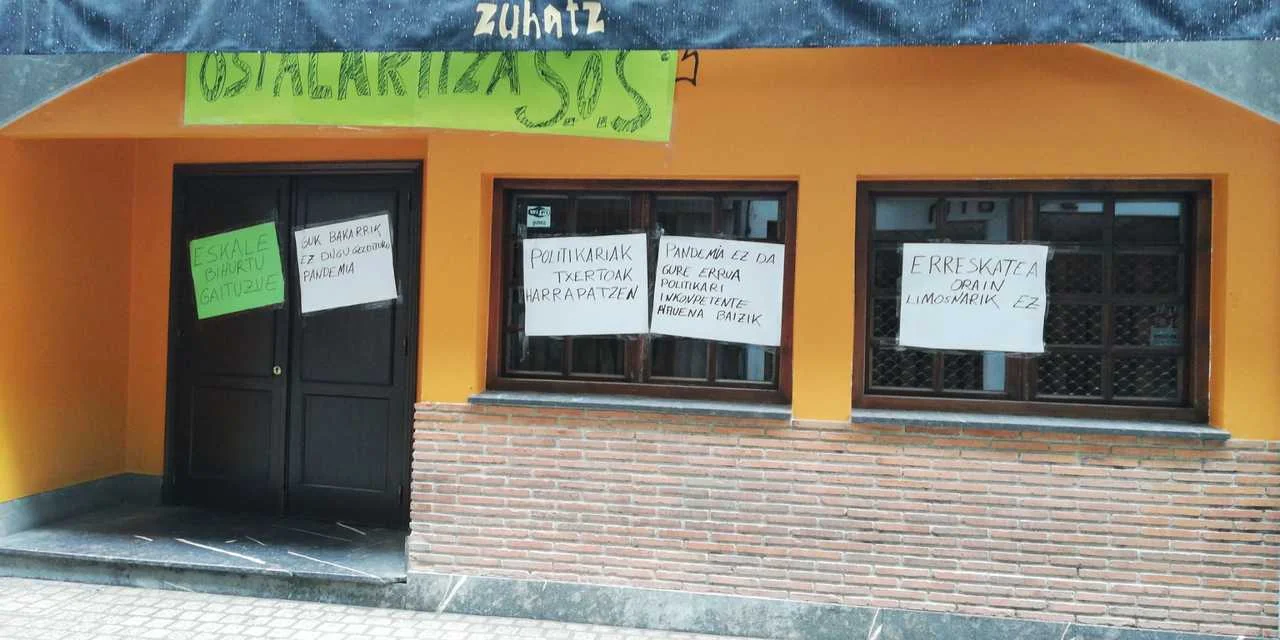 zuhatz
OSTALARITZA S.O.S
ESKALE
BIHURTU
GAITUZUE
GUK BAKARRIK
EZ DUGU GELDITUKO
PANDEMIA
POLITIKARIAK
TXERTOAK
HARRAPATZEN
PANDEMIA EZ DA
GURE ERRUA
POLITIKARI
INKONPETENTE
BAIZIK
ERRESKATEA
ORAIN
LIMOSNARIK EZ